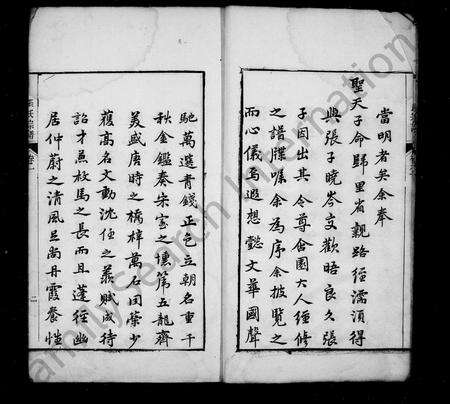 當明者矣余奉
聖天子命歸里省親路經濡須得
與張子曉岑交歡晤良久張
子因出其令尊舍園大人經修
之譜牒囑余為序余披覽之
而心儀焉遐想懿文華國聲
馳萬選青錢正色立朝名重千
秋金鑑奏宋室之
五龍齊
美盛唐時之
萬石田榮少
擅高名文動沈
之
賦成待
詔才兼枚馬之長而且蓬徑幽
居仲蔚之清風足尚丹霞餐
氏宗譜
卷一
二
Family Search International